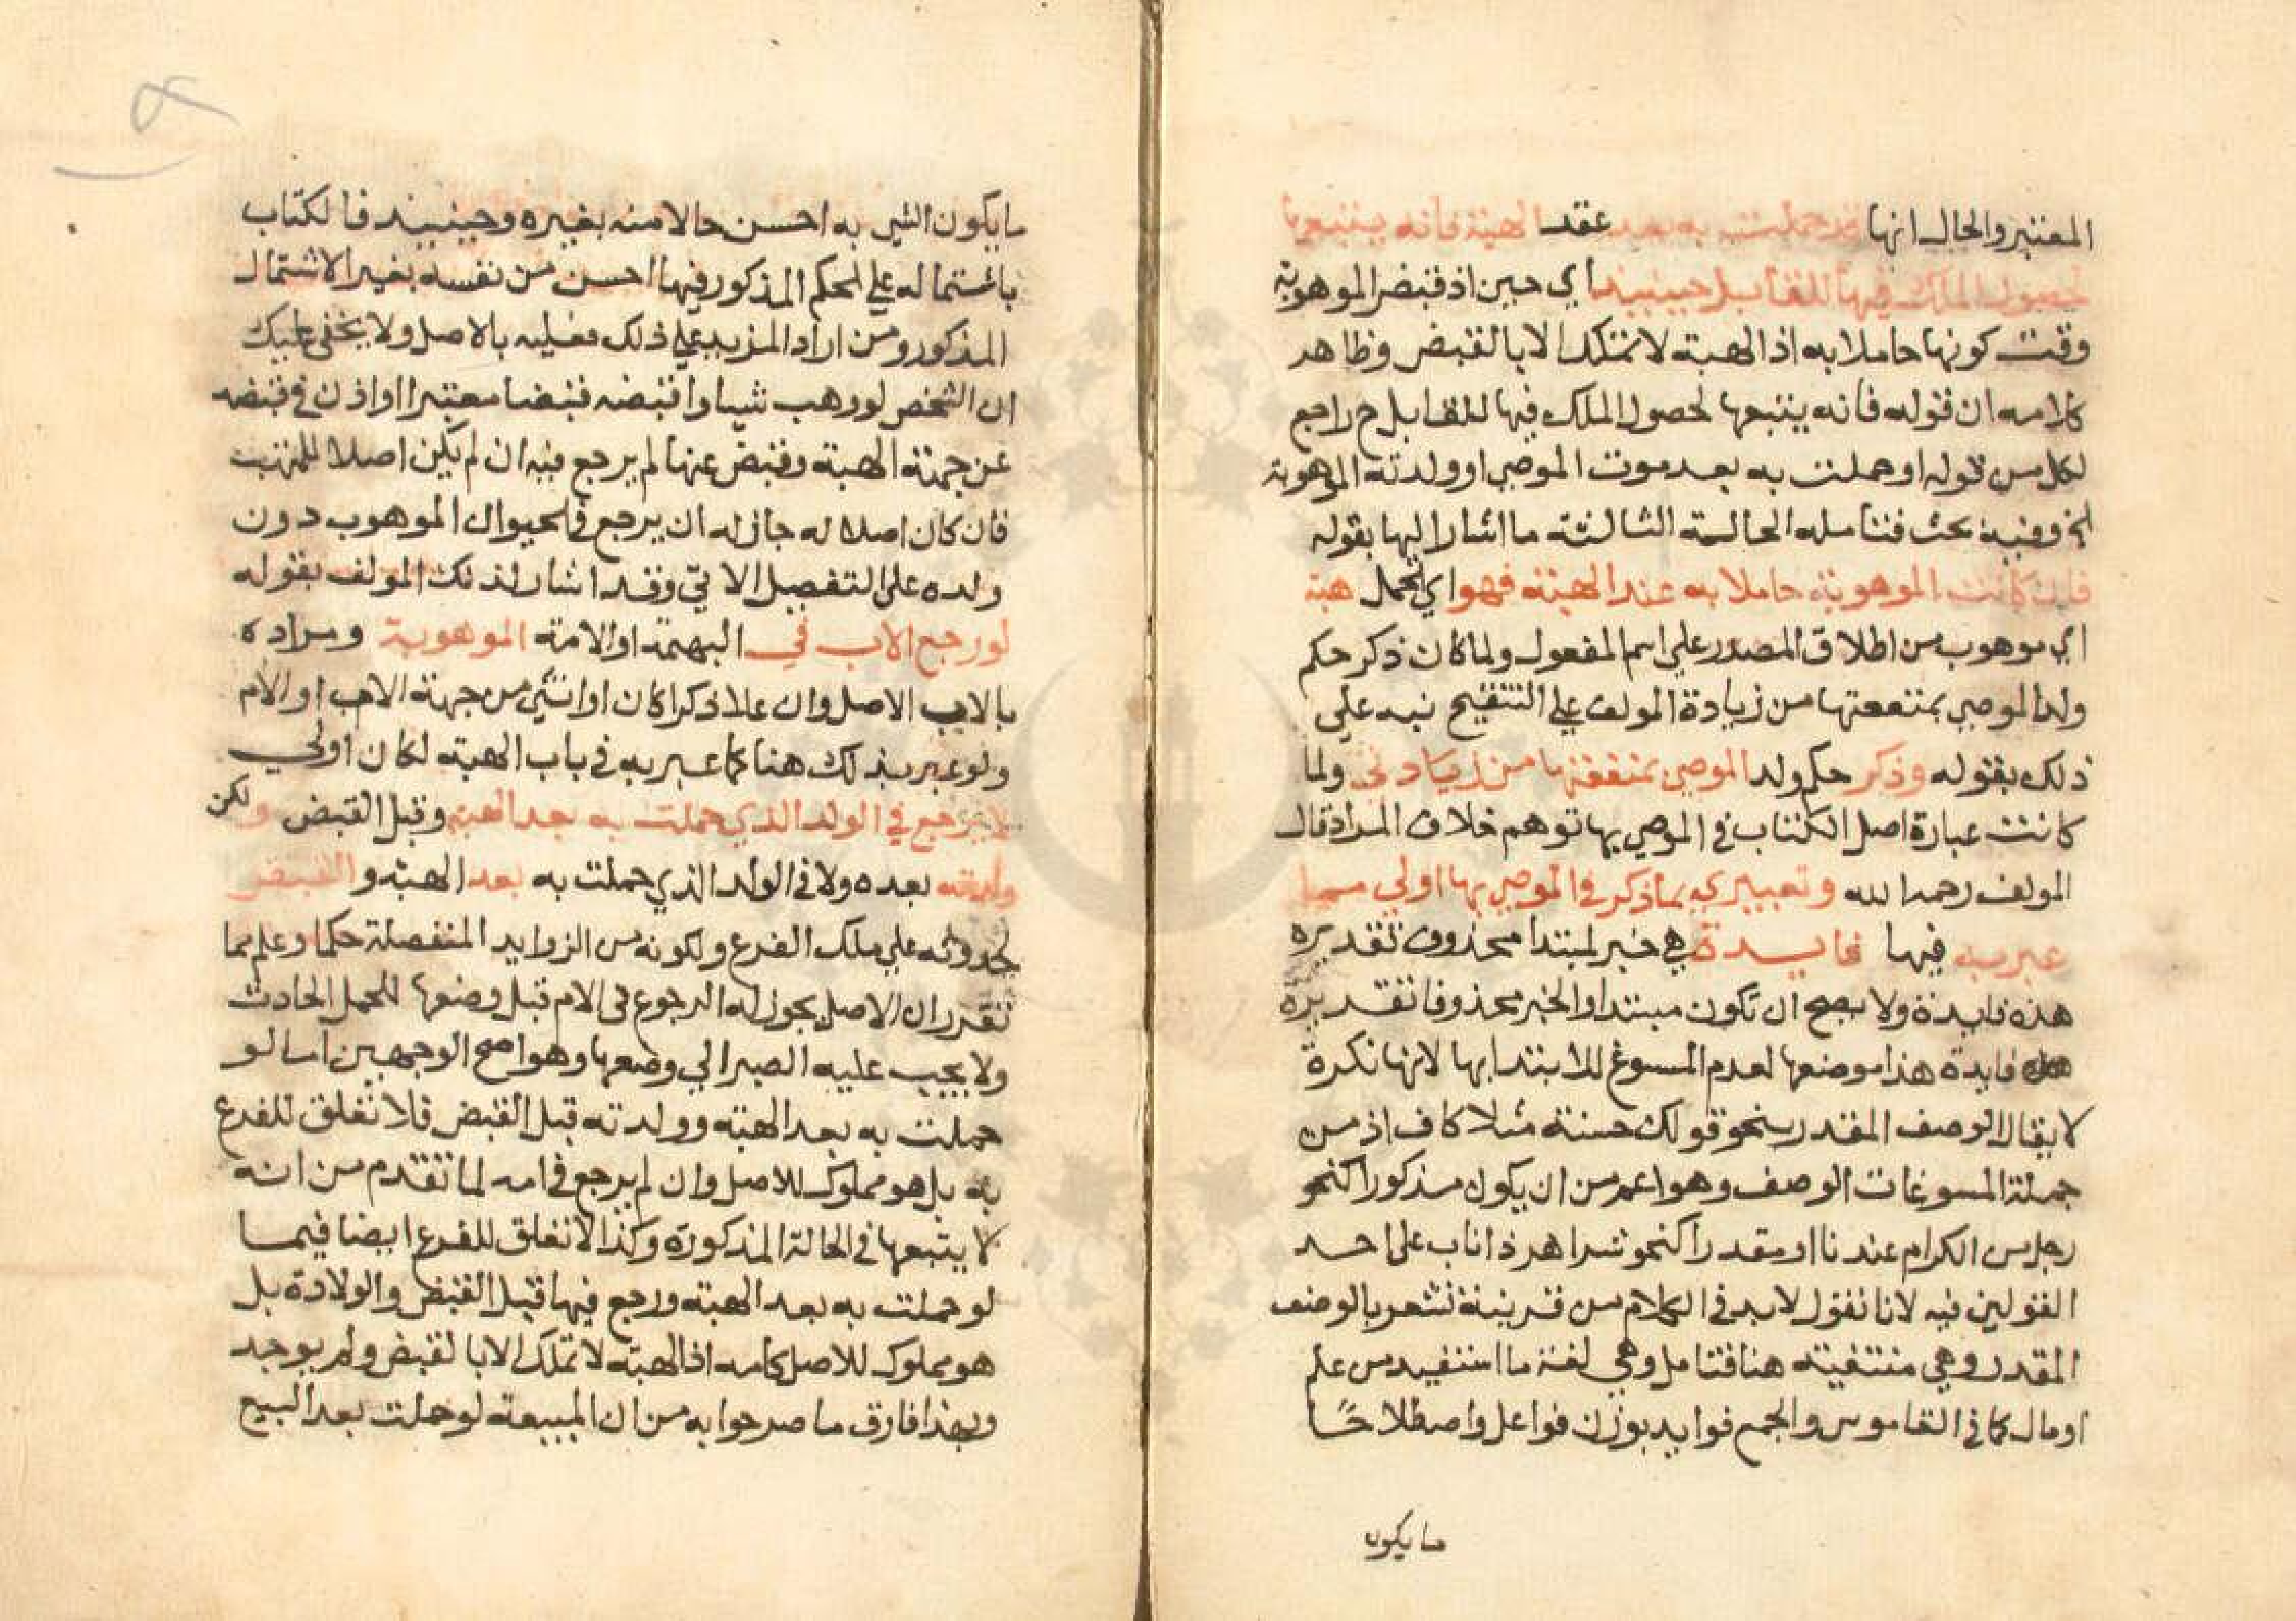 المعتبر والحال انها قد حملت به بعد عقد الهبة فانه يتبعها
لحصول الملك فيها للقابل حينيذ اي حين اذ قبض الموهوبة
وقت كونها حاملا به اذ الهبة لا تملك الا بالقبض وظاهر
كلامه ان قوله فانه يتبعها لحصول الملك فيها للقابل ح راجع
لكل من قوله او حملت به بعد موت الموصي او ولدته الموهوبة
الخ وفيه بحث فتامله الحالة الثالثة ما اشار اليها بقوله
فان كانت الموهوبة حاملا به عند الهبة فهو اي الحمل هبة
اي موهوب من اطلاق المصدر علي اسم المفعول ولما كان ذكر حكم
ولد الموصي بمنفعتها من زيادة المولف علي التنقيح نبه علي
ذلك بقوله وذكر حكم ولد الموصي بمنفعتها من زيادتي ولما
كانت عبارة اصل الكتاب في الموصي بها توهم خلاف المراد قال
المولف رحمه الله وتعبيري بما ذكر في الموصي بها اولي مما
عبر به فيها فايدة هي خبر لمبتدا محذوف تقديره
هذه فايدة ولا يصح ان تكون مبتدا والخبر محذوفا تقديره
فايدة هذا موضعها لعدم المسوغ للابتدا بها لانها نكرة
لا يقال الوصف المقدر بنحو قولك حسنة مثلا كاف اذ من
جملة المسوغات الوصف وهو اعم من ان يكون مذكورا كنحو
رجل من الكرام عندنا او مقدرا كنحو شر اهر ذا ناب علي احد
القولين فيه لانا نقول لا بد في الكلام من قرينة تشعر بالوصف
المقدر وهي منتفية هنا فتامل وهي لغة ما استفيد من علم
او مال كما في القاموس والجمع فوايد بوزن فواعل واصطلاحًا
ما يكون
ما يكون الشي به احسن حالا منه بغيره وحينيذ فالكتاب
باشتماله علي الحكم المذكور فيها احسن من نفسه بغير الاشتمال
المذكور ومن اراد المزيد علي ذلك فعليه بالاصل ولا يخفي عليك
ان الشخص لو وهب شيا واقبضه قبضا معتبرا او اذن في قبضه
عن جهة الهبة وقبض عنها لم يرجع فيه ان لم يكن اصلا للمتهب
فان كان اصلا له جاز له ان يرجع في الحيوان الموهوب دون
ولده علي التفصيل الاتي وقد اشار لذلك المولف بقوله
لو رجع الاب في البهيمة او الامة الموهوبة ومراده
بالاب الاصل وان علا ذكرا كان او انثي من جهة الاب او الام
ولو عبر بذلك هنا كما عبر به في باب الهبة لكان اولي
لا يرجع في الولد الذي حملت به بعد الهبة وقبل القبض ولكن
ولدته بعده ولا في الولد الذي حملت به بعد الهبة والقبض
لحدوثه علي ملك الفرع ولكونه من الزوايد المنفصلة حكما وعلم مما
تقرر ان الاصل يجوز له الرجوع في الام قبل وضعها للحمل الحادث
ولا يجب عليه الصبر الي وضعها وهو اصح الوجهين اما لو
حملت به بعد الهبة وولدته قبل القبض فلا تعلق للفرع
به بل هو مملوك للاصل وان لم يرجع في امه لما تقدم من انه
لا يتبعها في الحالة المذكورة وكذا لا تعلق للفرع ايضا فيما
لو حملت به بعد الهبة ورجع فيها قبل القبض والولادة بل
هو مملوك للاصل كامه اذ الهبة لا تملك الا بالقبض ولم يوجد
وبهذا فارق ما صرحوا به من ان المبيعة لو حملت بعد البيع